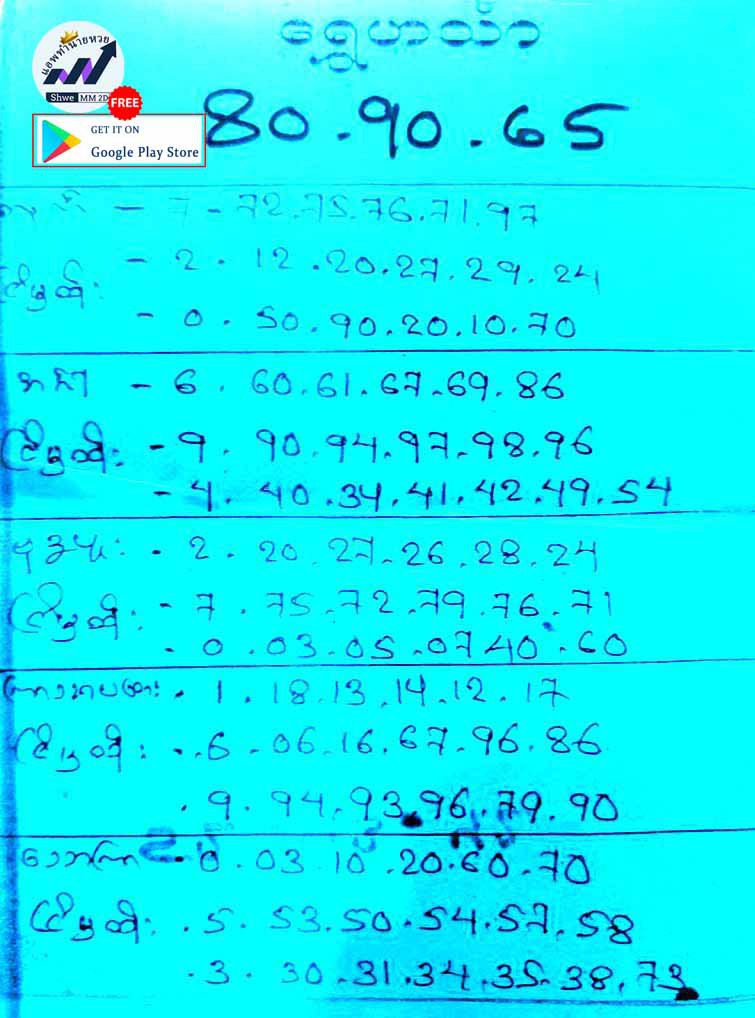 ရွှေဟင်္သာ
แอพทำนายหวย
Shwe MM 2D
FREE
GET IT ON
Google Play Store
80 . 90 . 65
- 7 - 72 . 75 . 76 . 71 . 97
- 2 . 12 . 20 . 27 . 29 . 24
- 0 . 50 . 90 . 20 . 10 . 70
အင်္ဂါ - 6 . 60 . 61 . 67 . 69 . 86
- 9 . 90 . 94 . 97 . 98 . 96
- 4 . 40 . 34 . 41 . 42 . 49 . 54
ဗုဒ္ဓဟူး - 2 . 20 . 27 . 26 . 28 . 24
- 7 . 75 . 72 . 79 . 76 . 71
- 0 . 03 . 05 . 07 40 . 60
ကြာသပတေး . 1 . 18 . 13 . 14 . 12 . 17
. 6 - 06 . 16 . 67 . 96 . 86
. 9 . 94 . 93 . 96 . 79 . 90
သောကြာ - 0 . 03 . 10 . 20 . 60 . 70
. 5 . 53 . 50 . 54 . 57 . 58
. 3 . 30 . 31 . 34 . 35 . 38 . 73